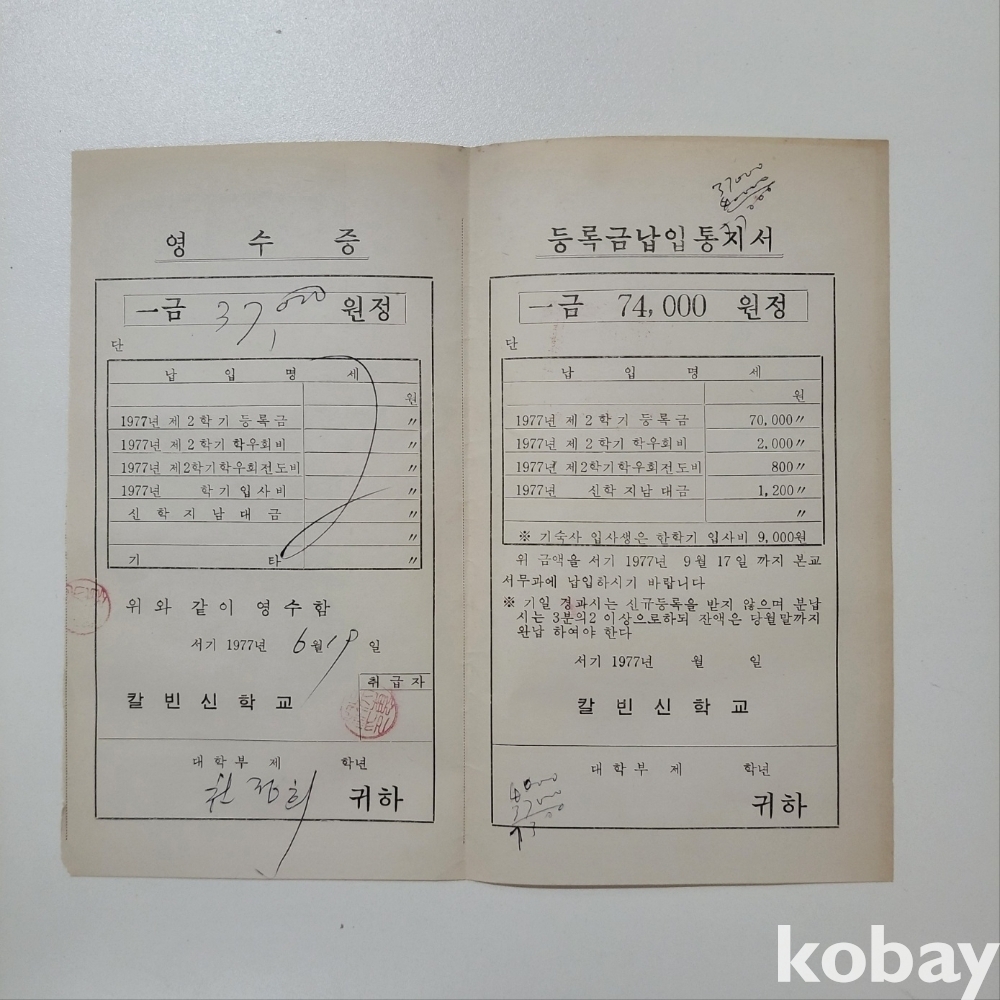 영 수 증
一금 37,000 원정
단
납 입 명 세
원
1977년 제 2 학기 등록금 〃
1977년 제 2 학기 학우회비 〃
1977년 제2학기학우회전도비 〃
1977년 학기 입사비 〃
신 학 지 남 대 금 〃
〃
기 타 〃
위 와 같 이 영 수 함
서기 1977년 6월 19일
취 급 자
칼 빈 신 학 교
대 학 부 제 학년
정희 귀하
37000
등록금납입통지서
一금 74,000 원정
단
납 입 명 세
원
1977년 제 2 학기 등록금 70,000〃
1977년 제 2 학기 학우회비 2,000〃
1977년 제2학기학우회전도비 800〃
1977년 신학 지남 대금 1,200〃
〃
※ 기숙사 입사생은 한학기 입사비 9,000원
위 금액을 서기 1977년 9월 17일 까지 본교
서무과에 납입하시기 바랍니다
※ 기일 경과시는 신규등록을 받지 않으며 분납
시는 3분의2 이상으로하되 잔액은 당월말까지
완납 하여야 한다
서기 1977년 월 일
칼 빈 신 학 교
대 학 부 제 학년
귀하
kobay